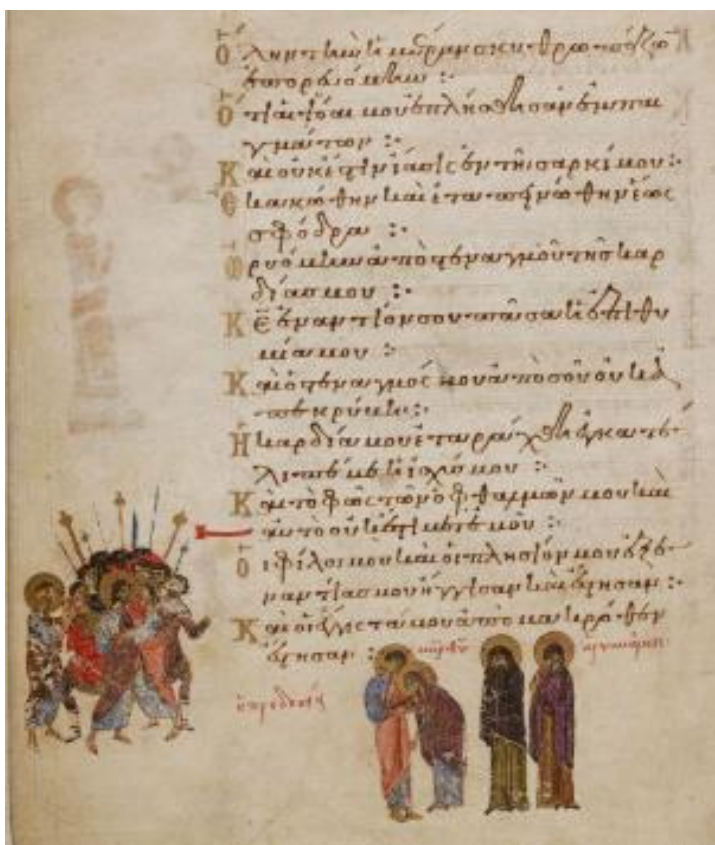 Ὅλην τὴν ἡμέραν σκυθρωπάζων
ἐπορευόμην :
Ὅτι αἱ ψόαι μου ἐπλήσθησαν ἐμπαι
γμάτων :
Καὶ οὐκ ἔστιν ἴασις ἐν τῇ σαρκί μου :
Ἐκακώθην καὶ ἐταπεινώθην ἕως
σφόδρα :
Ὠρυόμην ἀπὸ στεναγμοῦ τῆς καρ
δίας μου :
Κ̅Ε̅ ἐναντίον σου πᾶσα ἡ ἐπιθυ
μία μου :
Καὶ ὁ στεναγμός μου ἀπὸ σοῦ οὐκ ἀ
πεκρύβη :
Ἡ καρδία μου ἐταράχθη ἐγκατέ
λιπέ με ἡ ἰσχύς μου :
Καὶ τὸ φῶς τῶν ὀφθαλμῶν μου καὶ
αὐτὸ οὐκ ἔστι μετ' ἐμοῦ :
Οἱ φίλοι μου καὶ οἱ πλησίον μου ἐξ ἐ
ναντίας μου ἤγγισαν καὶ ἔστησαν :
Καὶ οἱ ἔγγιστά μου ἀπὸ μακρόθεν
ἔστησαν :
ἡ προδοσία